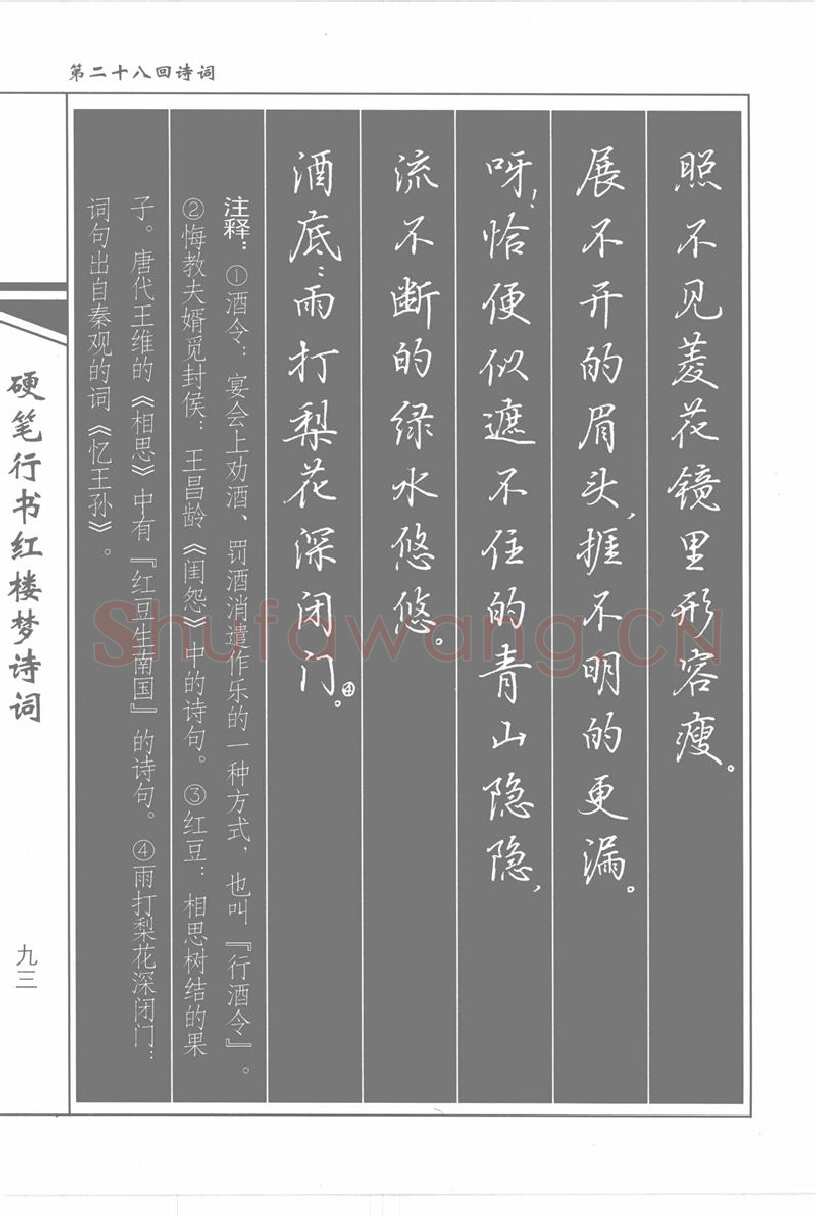 第二十八回诗词
照不见菱花镜里形容瘦。
展不开的眉头,捱不明的更漏。
呀!恰便似遮不住的青山隐隐,
流不断的绿水悠悠。
酒底:雨打梨花深闭门。④
注释:①酒令:宴会上劝酒、罚酒消遣作乐的一种方式,也叫『行酒令』。
②悔教夫婿觅封侯:王昌龄《闺怨》中的诗句。③红豆:相思树结的果
子。唐代王维的《相思》中有『红豆生南国』的诗句。④雨打梨花深闭门:
词句出自秦观的词《忆王孙》。
硬笔行书红楼梦诗词
九三
Shufawang.CN